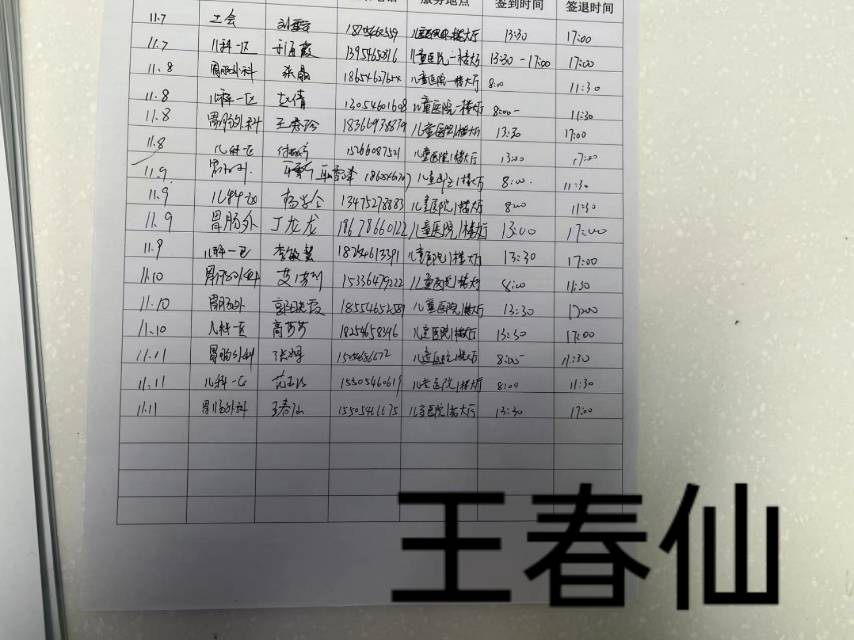 服务地点 签到时间 签退时间
11.7 工会 儿童医院一楼大厅 13:30 17:00
11.7 儿科一区 儿童医院一楼大厅 13:30-17:00 17:00
11.8 胃肠外科 张晶 儿童医院一楼大厅 8:00 11:30
11.8 儿科一区 赵倩 13054601698 儿童医院一楼大厅 8:00- 11:30
11.8 胃肠外科 王春玲 儿童医院1楼大厅 13:30 17:00
11.8 儿科一区 15266087521 儿童医院1楼大厅 13:00 17:00
11.9 儿童医院1楼大厅 8:00 11:30
11.9 儿科一区 13475278883 儿童医院1楼大厅 8:00 11:30
11.9 胃肠外 丁龙龙 18678660122 儿童医院1楼大厅 13:00 17:00
11.9 儿科一区 李敏慧 18254613391 儿童医院1楼大厅 13:30 17:00
11.10 胃肠外科 15336479222 儿童医院1楼大厅 8:00 11:30
11.10 胃肠外 儿童医院1楼大厅 13:30 17:00
11.10 儿科一区 高芳芳 18254658346 儿童医院1楼大厅 13:30 17:00
11.11 胃肠外科 儿童医院1楼大厅 8:00 11:30
11.11 儿科一区 15505460619 儿童医院1楼大厅 8:00 11:30
11.11 胃肠外科 王春仙 15505461675 儿童医院1楼大厅 13:30 17:00
王春仙